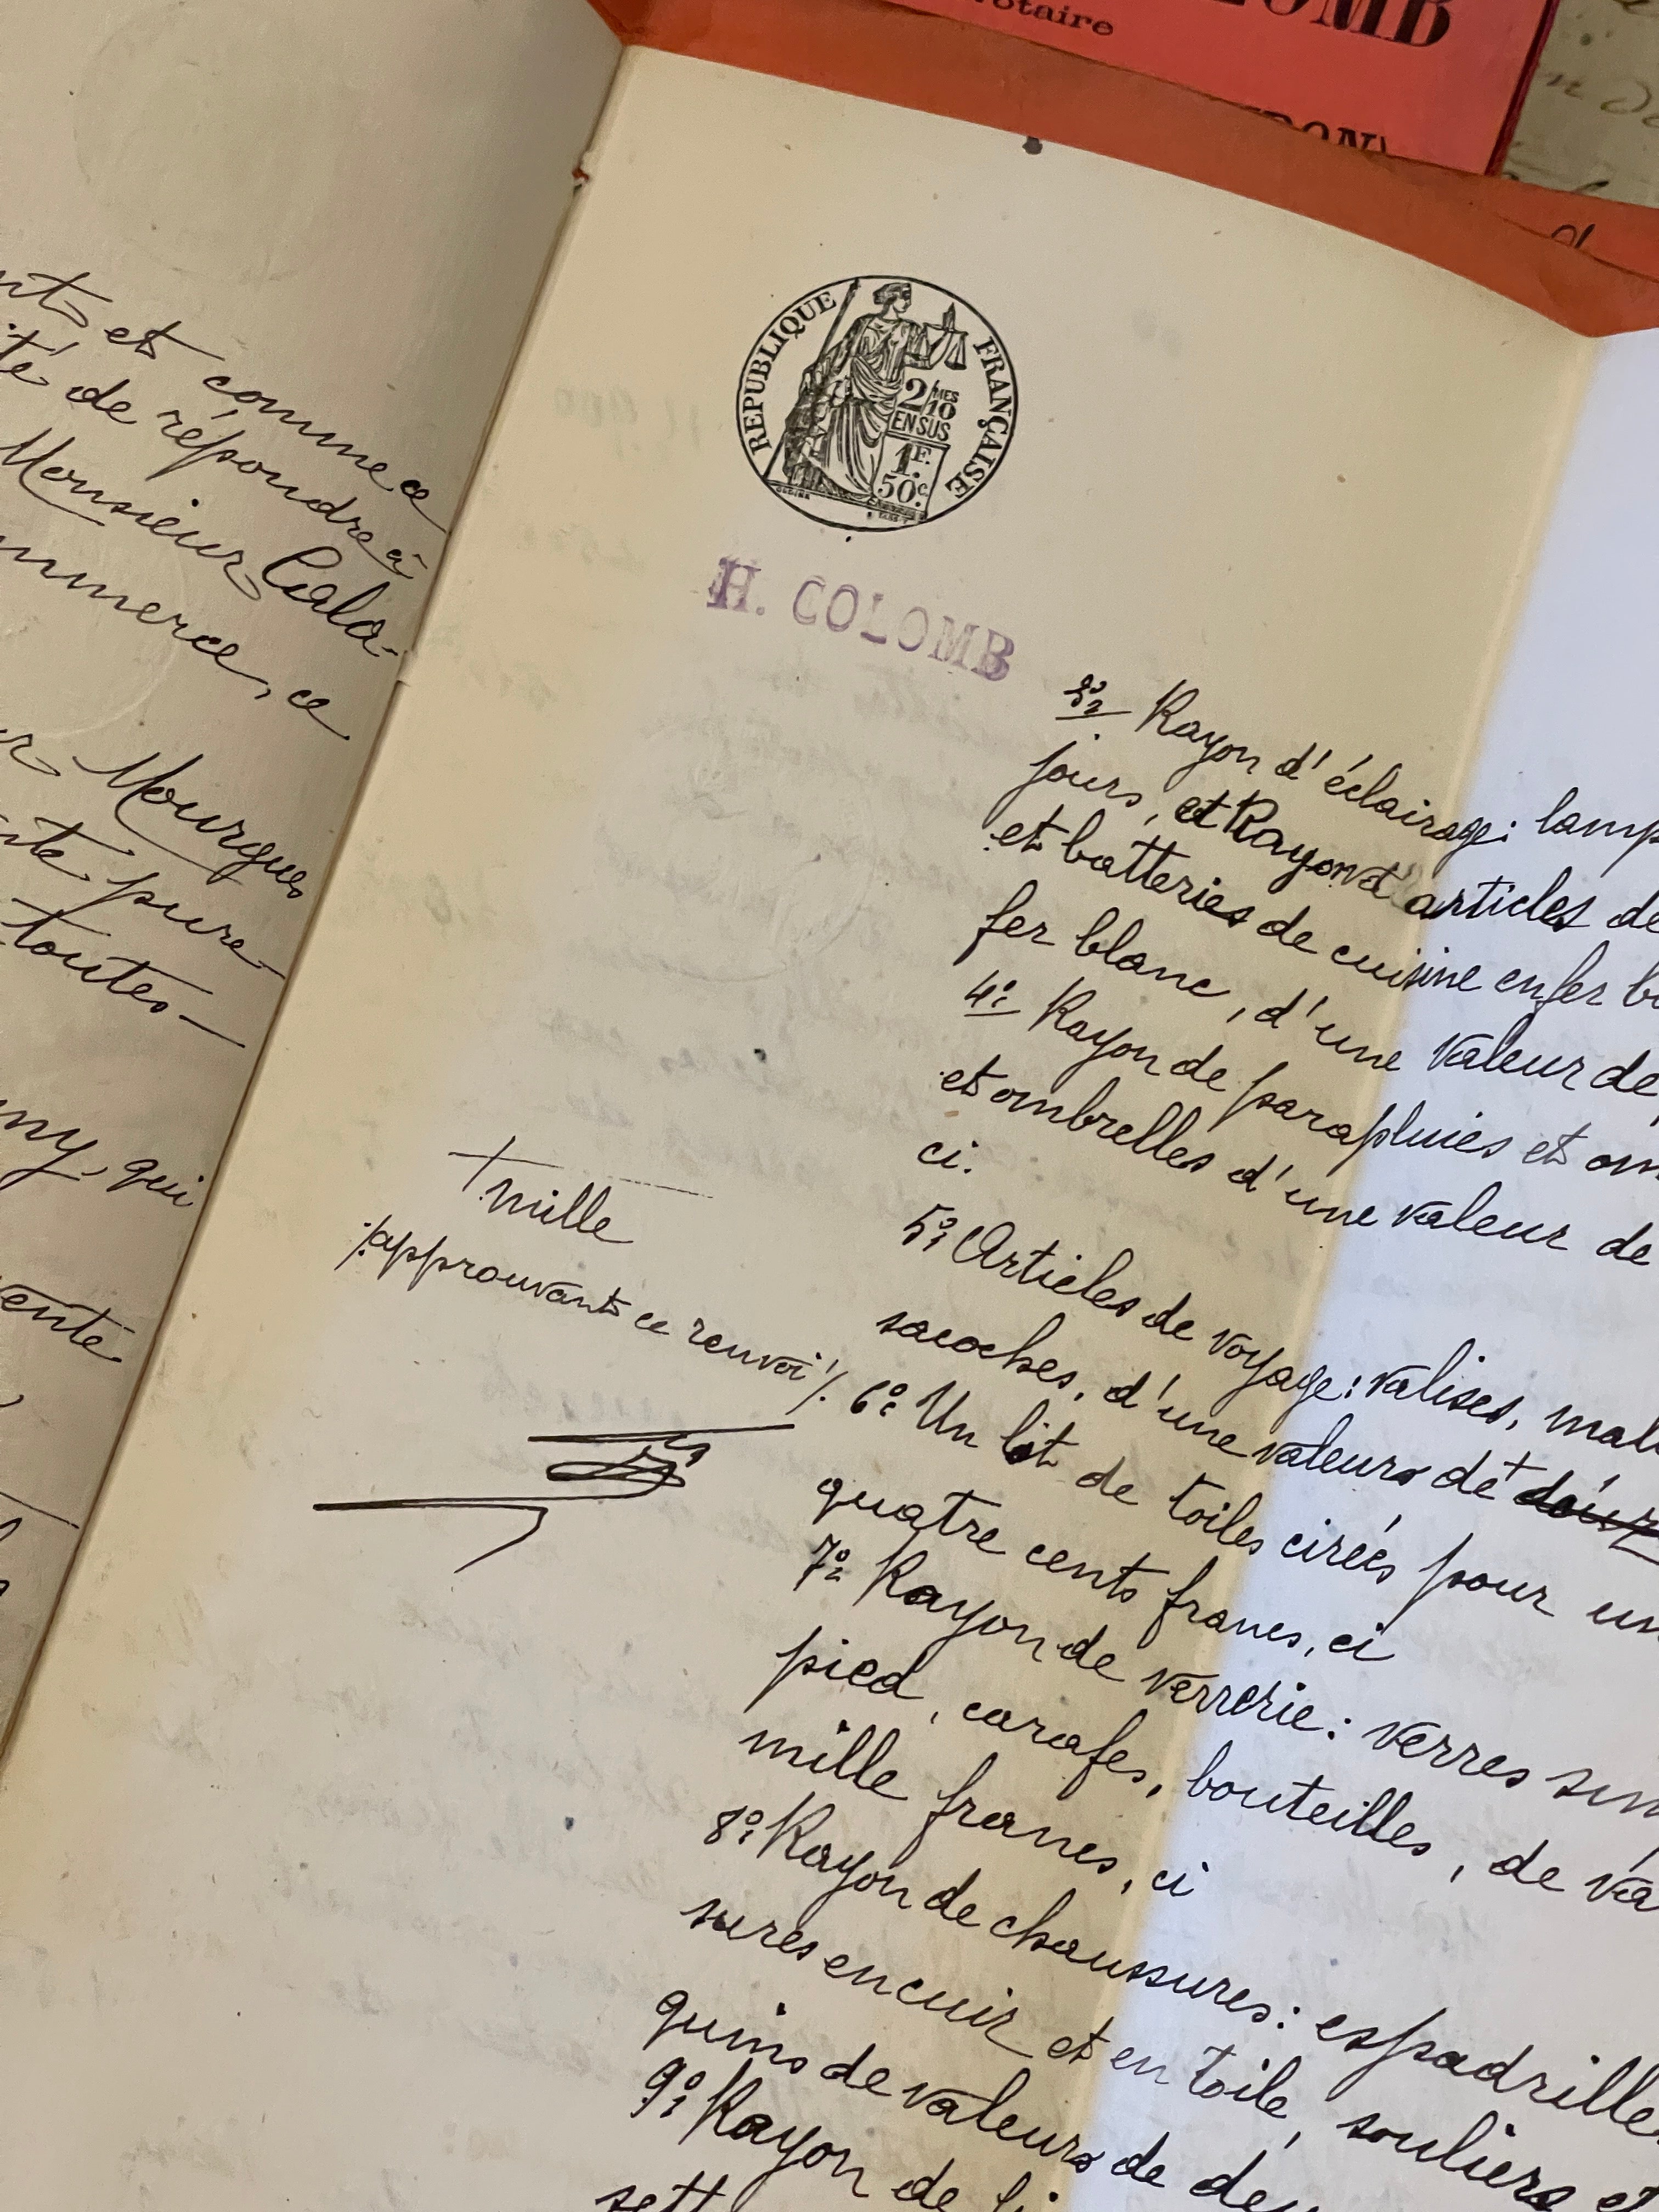 et comme ce
de répondre à
Monsieur Cala-
ce
Mourgues
pure-
toutes
qui
vente
otaire
OMB
RÉPUBLIQUE FRANÇAISE
2/10 MES
EN SUS
1F.
50c.
H. COLOMB
3º Rayon d'éclairage: lamp
jours, et Rayon d'articles de
et batteries de cuisine en fer b
fer blanc, d'une valeur de
4º Rayon de parapluies et om
et ombrelles d'une valeur de
ci.
5º Articles de voyage: valises, mal
sacoches, d'une valeurs de +
6º Un lot de toiles cirées pour un
quatre cents francs, ci
7º Rayon de verrerie: verres sim
pied, carafes, bouteilles, de va
mille francs, ci
8º Rayon de chaussures: espadrille
sures en cuir et en toile, souliers et
quins de valeurs de deu
9º Rayon de
+ mille
./approuvant ce renvoi /.